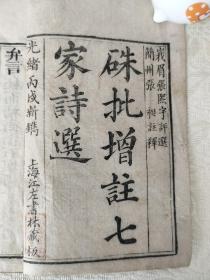 峩眉張熙宇評選
簡州張 昶註釋
硃批增註七
家詩選
光緒丙戌新鐫
上海江左書林藏板
弁言